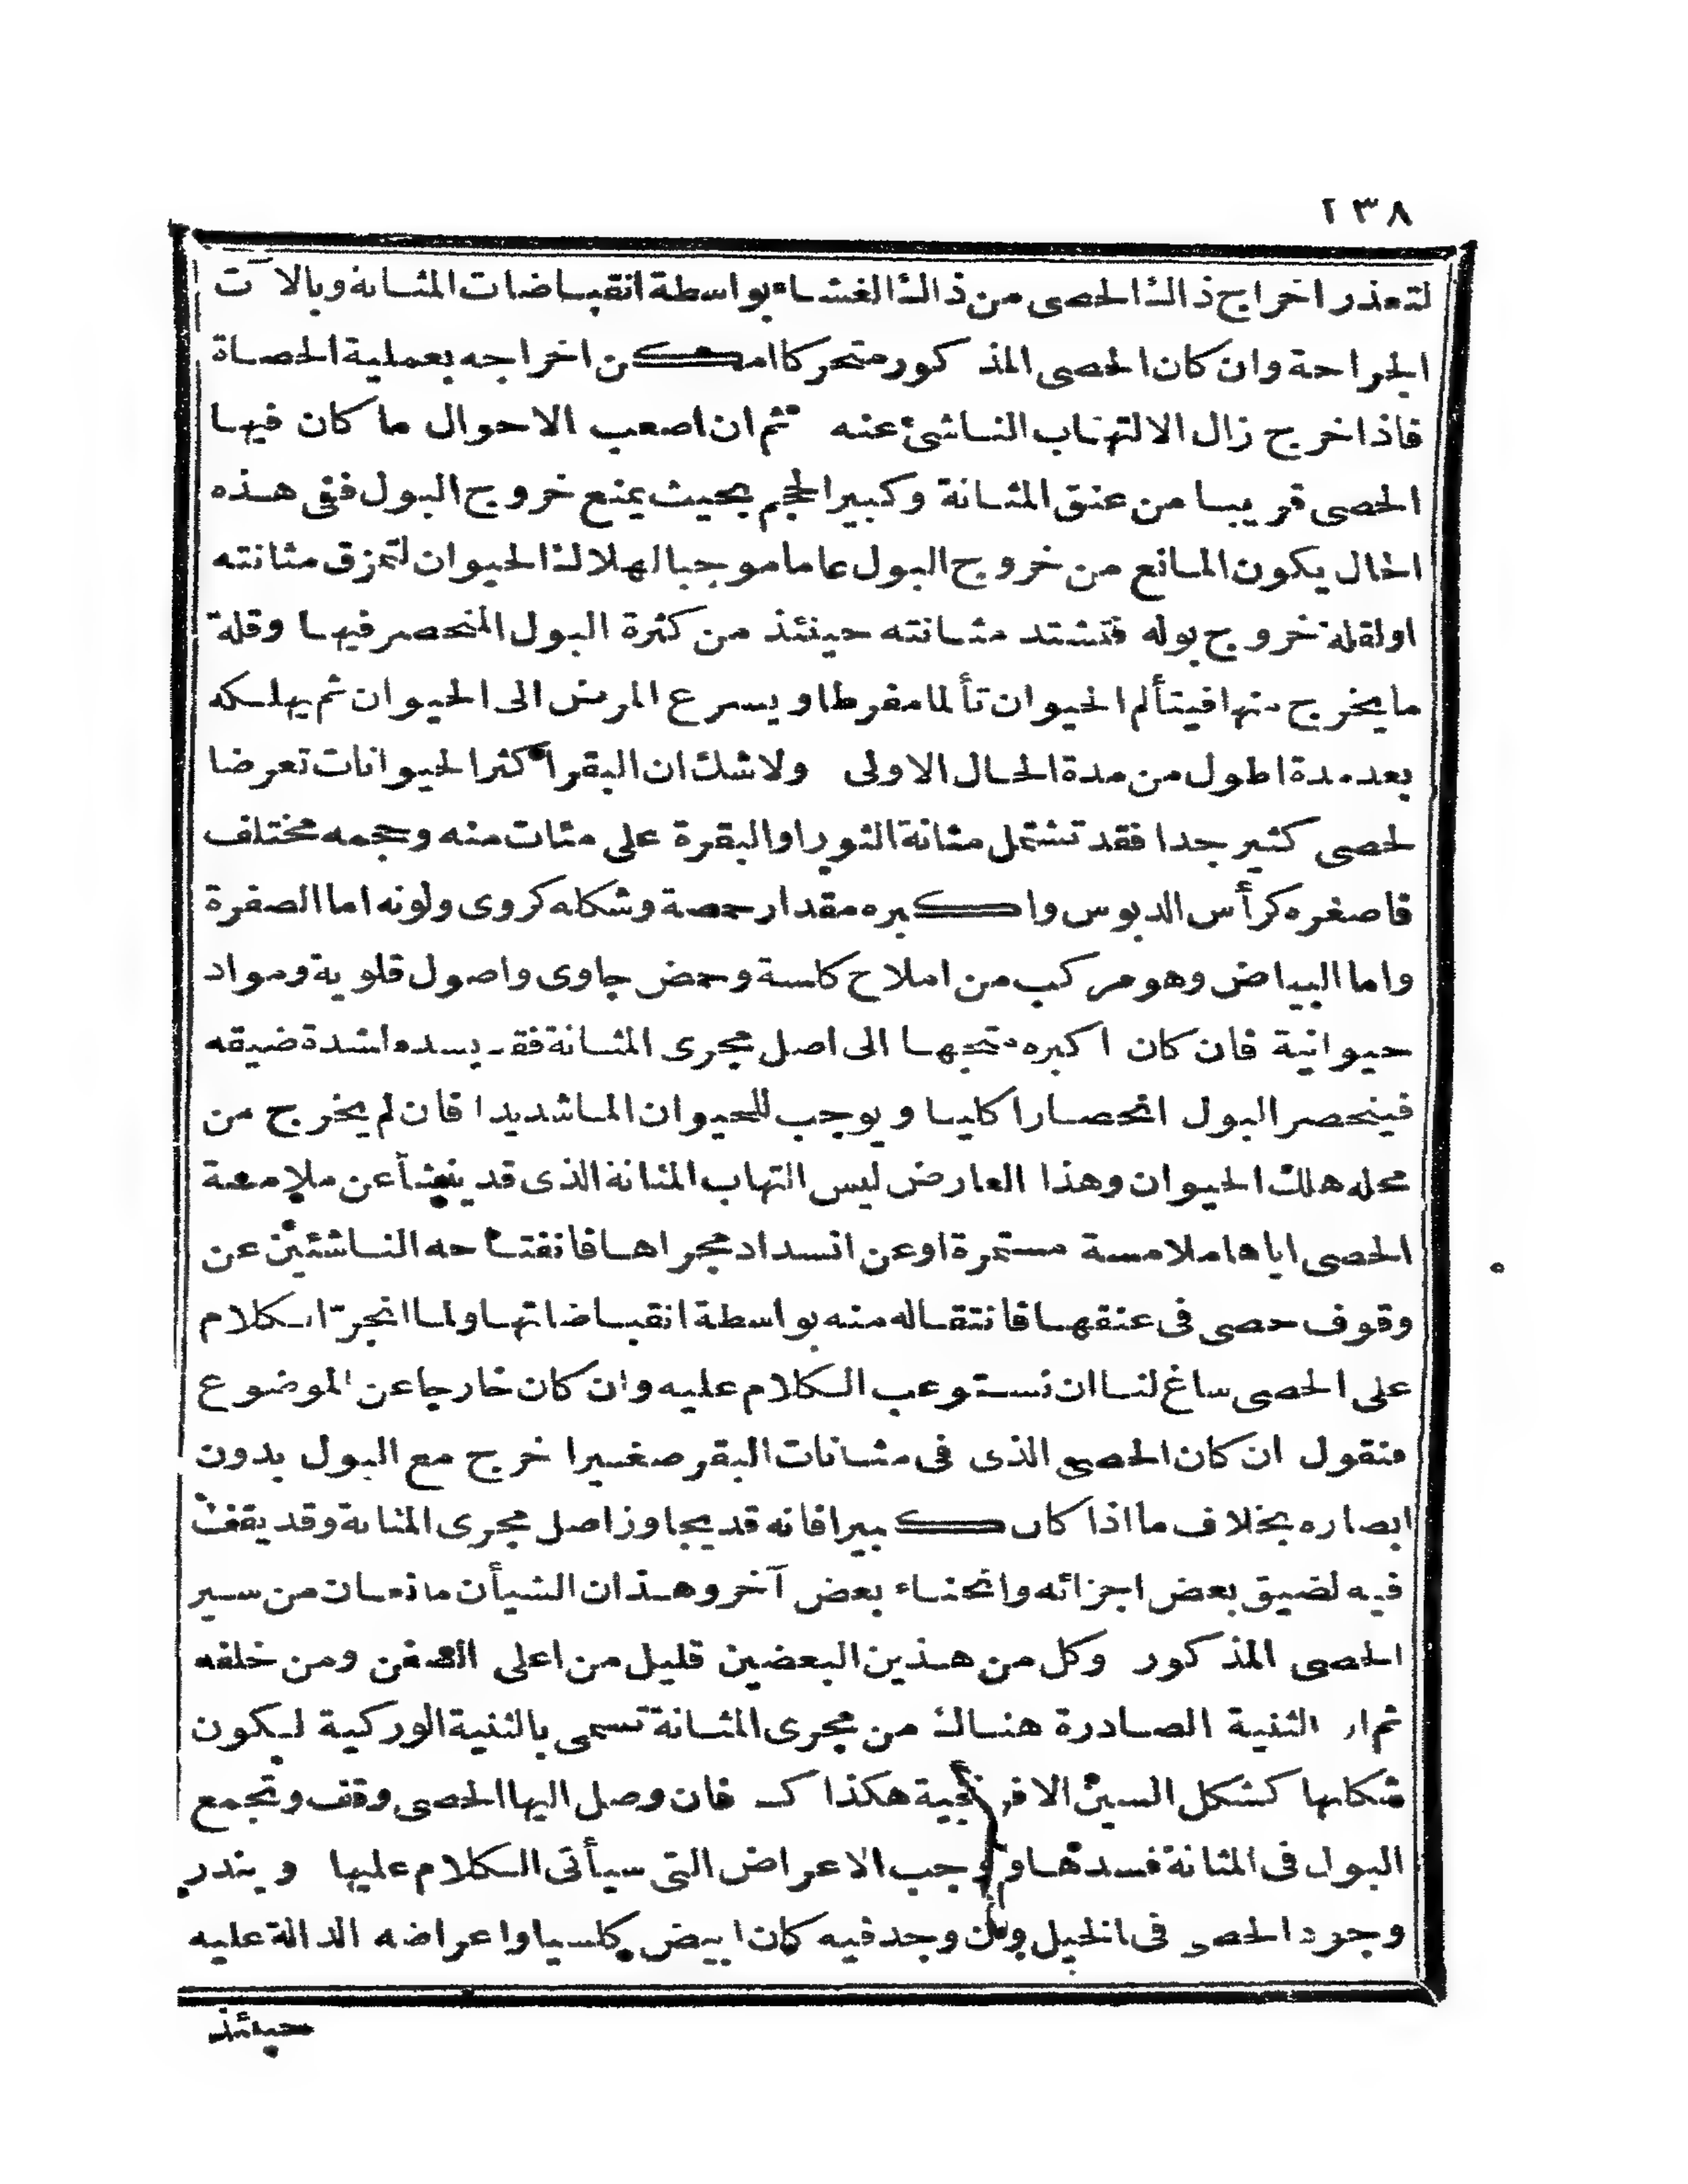 ٢٣٨
لتعذر اخراج ذالك الحصى من ذالك الغشاء بواسطة انقباضات المثانة وبالآلات
الجراحة وان كان الحصى المذكور متحركا امكن اخراجه بعملية الحصاة
فاذا اخرج زال الالتهاب الناشئ عنه ثم ان اصعب الاحوال ما كان فيها
الحصى قريبا من عنق المثانة وكبير الحجم بحيث يمنع خروج البول ففى هذه
الحال يكون المانع من خروج البول عاما موجبا لهلاك الحيوان لتمزق مثانته
او لقلة خروج بوله فتشتد مثانته حينئذ من كثرة البول المنحصر فيها وقلة
ما يخرج منها فيتألم الحيوان تألما مفرطا ويسرع المرض الى الحيوان ثم يهلكه
بعد مدة اطول من مدة الحال الاولى ولا شك ان البقر أكثر الحيوانات تعرضا
لحصى كثير جدا فقد تشتمل مثانة الثور او البقرة على مئات منه وحجمه مختلف
فاصغره كرأس الدبوس واكبره مقدار حمصة وشكله كروى ولونه اما الصفرة
واما البياض وهو مركب من املاح كلسة وحمض جاوى واصول قلوية ومواد
حيوانية فان كان اكبره متجها الى اصل مجرى المثانة فقد يسده لشدة ضيقه
فينحصر البول انحصارا كليا ويوجب للحيوان الما شديدا فان لم يخرج من
محله هلك الحيوان وهذا العارض ليس التهاب المثانة الذى قد ينشأ عن ملامسة
الحصى اياها ملامسة مستمرة او عن انسداد مجراها فانفتاحه الناشئين عن
وقوف حصى فى عنقها فانتقاله منه بواسطة انقباضاتها ولما انجرّ الكلام
على الحصى ساغ لنا ان نستوعب الكلام عليه وان كان خارجا عن الموضوع
فنقول ان كان الحصى الذى فى مثانات البقر صغيرا خرج مع البول بدون
ابصاره بخلاف ما اذا كان كبيرا فانه قد يجاوز اصل مجرى المثانة وقد يقف
فيه لضيق بعض اجزائه وانحناء بعض آخر وهذان الشيأن مانعان من سير
الحصى المذكور وكل من هذين البعضين قليل من اعلى الصفن ومن خلفه
ثم ان الثنية الصادرة هناك من مجرى المثانة تسمى بالثنية الوركية لكون
شكلها كشكل السين الافرنجية هكذا ك فان وصل اليها الحصى وقف وتجمع
البول فى المثانة فسدها واوجب الاعراض التى سيأتى الكلام عليها ويندر
وجود الحصى فى الخيل وان وجد فيه كان ابيض كلسيا واعراضه الدالة عليه
حينئذ